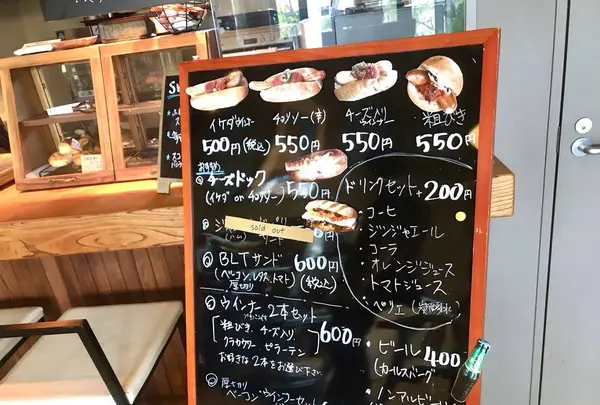 イケダウインナー
チョリソー(辛)
チーズ入り
ウインナー
粗びき
500円(税込)
550
550円
550円
おすすめ
チーズドック 550円
(イケダ or チョリソー)
ドリンクセット+200円
sold out
・コーヒ
・ジンジャエール
・コーラ
・オレンジジュース
・トマトジュース
・ペリエ
BLTサンド 600円
(ベーコン、レタス、トマト) (税込)
厚切り
ウインナー2本セット
粗びき チーズ入り 600円
クラカウアー ピラーテン
お好きな2本をお選び下さい
・ビール 400
(カールスバーグ
・ノンアルビー
厚切り